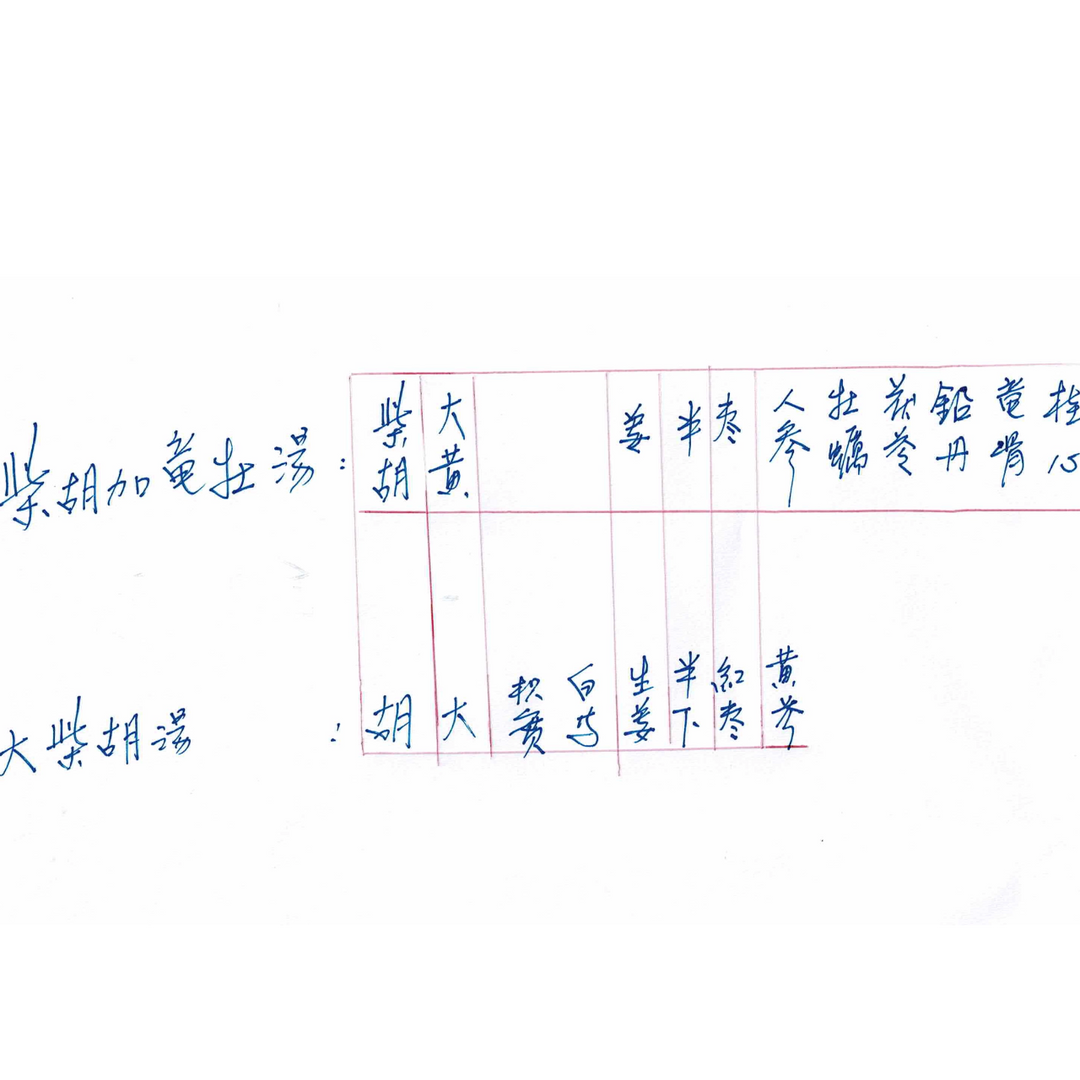 柴胡加竜牡湯： 柴胡 大黄 姜 半 枣 人参 牡蠣 茯苓 鉛丹 竜骨 桂
大柴胡湯： 胡 大 枳實 白芍 生姜 半下 紅枣 黄芩